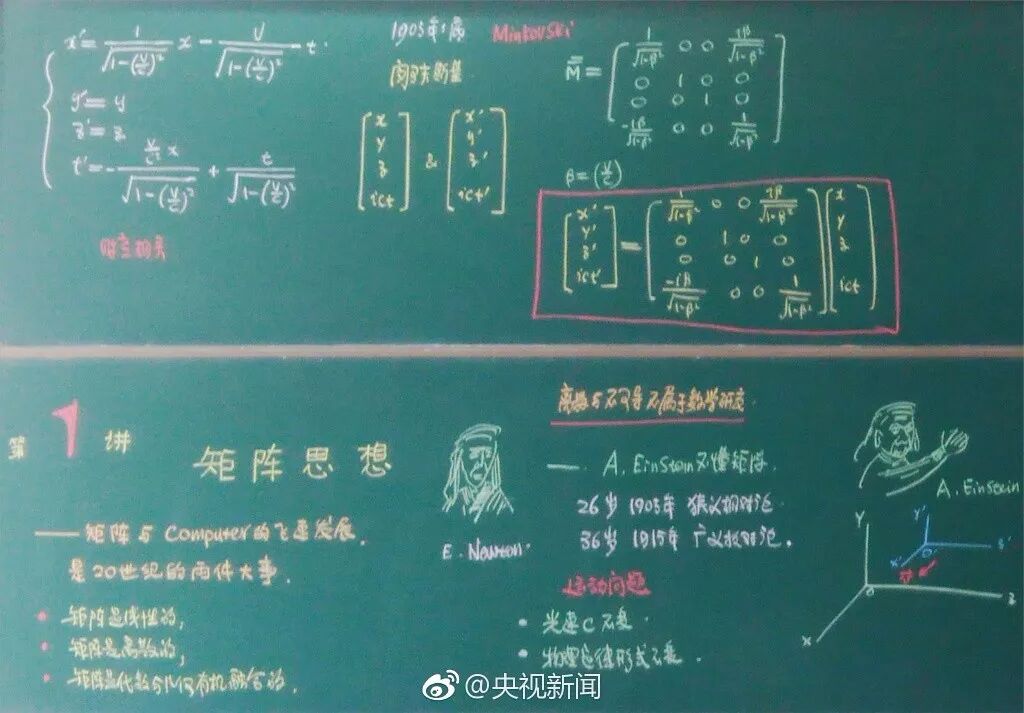 x' = 1/√(1-(v/c)²) x - v/√(1-(v/c)²) t
y' = y
z' = z
t' = - (v/c² x)/√(1-(v/c)²) + t/√(1-(v/c)²)
时空相关
1905年
Minkovski
[x y z ict] & [x' y' z' ict']
M = [1/√(1-β²) 0 0 iβ/√(1-β²)
0 1 0 0
0 0 1 0
-iβ/√(1-β²) 0 0 1/√(1-β²)]
β = (v/c)
[x' y' z' ict'] = [1/√(1-β²) 0 0 iβ/√(1-β²)
0 1 0 0
0 0 1 0
-iβ/√(1-β²) 0 0 1/√(1-β²)] [x y z ict]
第1讲
矩阵思想
——矩阵与Computer的飞速发展,
是20世纪的两件大事.
• 矩阵是线性的;
• 矩阵是离散的;
• 矩阵是代数与几何有机融合的.
E. Newton.
离散与不可导不属于数学研究.
— A. Einstein不懂矩阵.
26岁 1905年 狭义相对论.
36岁 1915年 广义相对论.
运动问题
• 光速C不变.
• 物理定律形式不变.
A. Einstein
Y
X
Z
O
Y'
X'
Z'
O'
@央视新闻